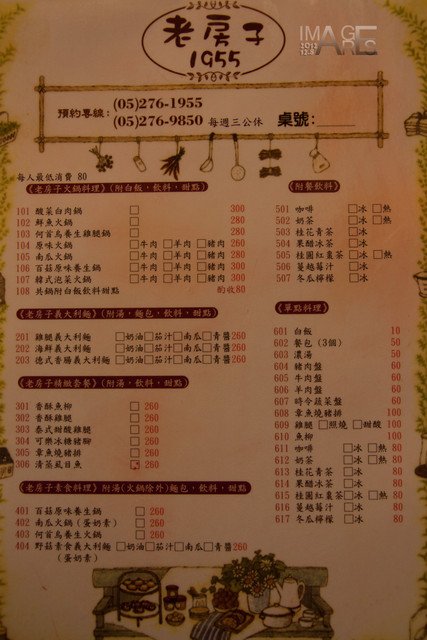 IMAGE
2013
12.8
ARES
老房子
1955
預約專線:
(05)276-1955
(05)276-9850 每週三公休 桌號:
每人最低消費 80
103 《老房子火鍋料理》(附白飯,飲料,甜點)
101 酸菜白肉鍋 □ 300
102 鮮魚火鍋 □ 280
103 何首烏養生雞腿鍋 □ 280
104 原味火鍋 □牛肉 □羊肉 □豬肉 260
105 南瓜火鍋 □牛肉 □羊肉 □豬肉 280
106 百菇原味養生鍋 □牛肉 □羊肉 □豬肉 300
107 韓式泡菜火鍋 □牛肉 □羊肉 □豬肉 300
108 共鍋附白飯飲料甜點 酌收80
《老房子義大利麵》(附湯,麵包,飲料,甜點)
201 雞腿義大利麵 □奶油□茄汁□南瓜□青醬 260
202 海鮮義大利麵 □奶油□茄汁□南瓜□青醬 260
203 德式香腸義大利麵 □奶油□茄汁□南瓜□青醬 260
《老房子精緻套餐》(附湯,飲料,甜點)
301 香酥魚柳 □ 260
302 香酥雞腿 □ 260
303 泰式甜酸雞腿 □ 260
304 可樂冰糖豬腳 □ 260
305 章魚燒豬排 □ 260
306 清蒸虱目魚 □ 260
《老房子素食料理》附湯(火鍋除外)麵包,飲料,甜點)
401 百菇原味養生鍋 □ 260
402 南瓜火鍋(蛋奶素) □ 260
403 何首烏養生火鍋 □ 260
404 野菇素食義大利麵 □奶油□茄汁□南瓜□青醬 260
(蛋奶素)
《附餐飲料》
501 咖啡 □冰 □熱
502 奶茶 □冰 □熱
503 桂花青茶 □冰
504 果醋冰茶 □冰
505 桂圓紅棗茶 □冰 □熱
506 蔓越莓汁 □冰
507 冬瓜檸檬 □冰
《單點料理》
601 白飯 10
602 餐包(3個) 50
603 濃湯 50
604 豬肉盤 60
605 牛肉盤 60
606 羊肉盤 60
607 時令蔬菜盤 60
608 章魚燒豬排 100
609 雞腿 □照燒 □甜酸 100
610 魚柳 100
611 咖啡 □冰 □熱 80
612 奶茶 □冰 □熱 80
613 桂花青茶 □冰 80
614 果醋冰茶 □冰 80
615 桂圓紅棗茶 □冰 □熱 80
616 蔓越莓汁 □冰 80
617 冬瓜檸檬 □冰 80